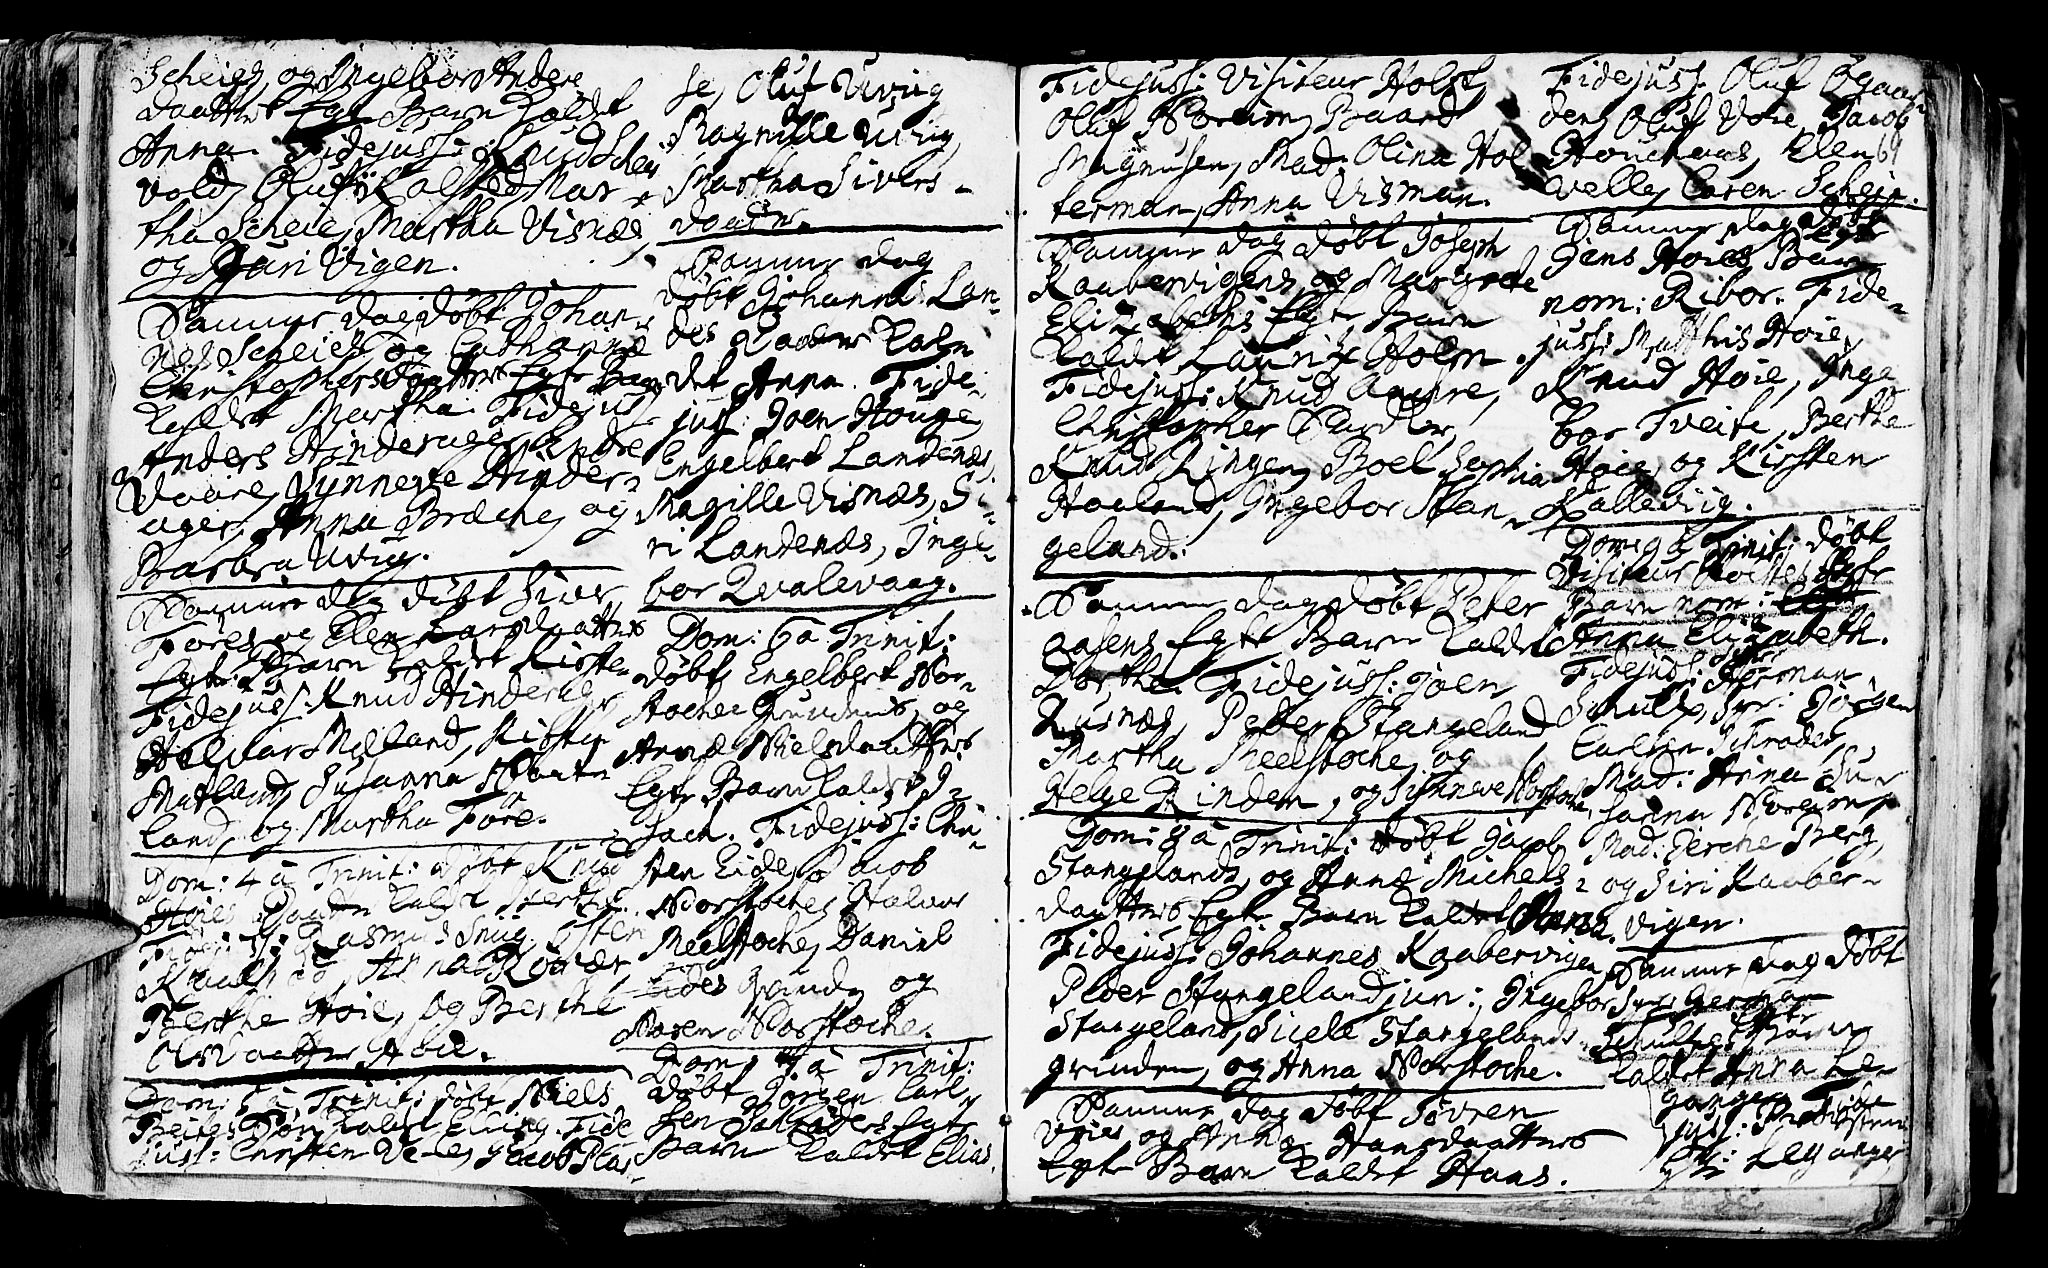 Scheies, og Ingebor Anders
daatters Egte Barn Kaldet
Anna. Fidejuss: Knud Schei
vold, Oluf Kalsted, Mar-
tha Scheie, Martha Visnæs,
og Guri Vigen.
Samme dag døbt Johan-
nes Scheies og Cathrinæ
Christophersdaatters Egte Barn
Kaldet Martha. Fidejuss:
Anders Hinderager, Endre
Vaare, Synneve Hinder-
ager, Anna Bræche, og
Barbra Uvig.
Samme dag døbt Siver
Føres og Elen Larsdaatters
Egte Barn Kaldet Kirsten
Fidejuss: Knud Hinderager
Halvar Mæland, Kirsten
Mæland, Susanna
land, og Martha Føre.
Dom: 4 à Trinit: døbt Knud
Høies Daatter Kaldet Berthe.
Fidejuss: Rasmus Snug, Østen
Anna Rover,
Berthe Høie, og Berthe
Olsdaatter Høie.
Dom: 5 à Trinit: døbt Niels
Beiers Søn Kaldet Elling. Fide
juss: Christen Vele, Jacob Plas-
se, Oluf Uviig
Ragnille Uvig,
Martha Sivers-
daatter.
Samme dag
døbt Johannes Lan-
des Daatter Kal
det Anna. Fide-
juss: Joen Houge,
Engelbert Landenæs,
Magille Visnæs, Si-
ri Landenæs, Inge-
bor Qvalevaag.
Dom: 6 à Trinit:
døbt Engelbert Nor-
stoche Grindens, og
Annæ Nielsdaatters
Egte Barn Kaldet I-
sach. Fidejuss: Chri-
sten Eide, Jacob
Norstoche, Halvar
Meelstoche, Daniel
Eides grinde og
Maren Norstoche.
Dom: 7 à Trinit:
døbt Jørgen Carl-
sen Schrøders Egte
Barn Kaldet Elias.
Fidejuss: Visiteur Holst,
Oluf Noreim, Baard
Magnusen, Mad: Olina Hol
terman, Anna Visman.
Samme dag døbt Joseph
Kaabervigens og Margrete
Elizabeths Egte Barn
Kaldt Lauritz Holm.
Fidejuss: Knud Aaure,
Christopher
Knud Ringen, Boel Sophia
Haaland, Ingebor Stan-
geland.
Samme dag døbt Peter
Aasens Egte Barn Kaldet
Dorthe. Fidejuss: Joen
Husnæs, Peder Stangeland
Martha Meelstoche, og
Helge Rinden, og Sinneve Norstoche.
Dom: 8 à Trinit: døbt Jacob
Stangelands, og Annæ Michels-
daatters Egte Barn Kaldet Anna.
Fidejuss: Johannes Kaabervigen
Peder Stangeland jun:, Ingebor
Stangeland, Sicele Stangelands
grinden, og Anna Norstoche.
Samme dag døbt Siøren
Voies og Annæ Hansdaatters
Egte Barn Kaldet Hans.
Fidejuss: Oluf Øgaar-
den, Oluf Voie, Jacob
Houchaas, Elen 64
Velle, Caren Scheie.
Samme dag døbt
Jens Høies Egte Barn
nom: Ribor. Fide-
juss: Matthis Høie,
Knud Høie, Inge
bor Tveite, Berthe
Høie, og Kirsten
Kalleviig.
Dom: 9 à Trinit: døbt
Visiteur Egte
Barn nom:
Anna Elizabeth.
Fidejuss: Sr: Herman
Schultz, Sr: Jørgen
Carlsen Schrøder,
Mad: Anna Su-
sanna Noreim,
Mad: Berg,
og Siri Kaaber-
vigen.
Samme dag døbt
Sr: German
Schultzes Egte Barn
Kaldet Anna Le-
ganger. Fide
juss:
Leganger